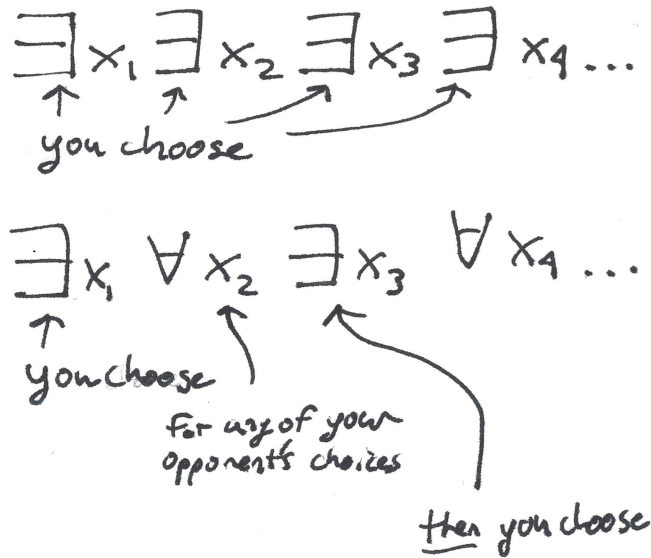 ∃ x₁ ∃ x₂ ∃ x₃ ∃ x₄ ...
you choose
∃ x₁ ∀ x₂ ∃ x₃ ∀ x₄ ...
you choose
For any of your
opponent's choices
then you choose